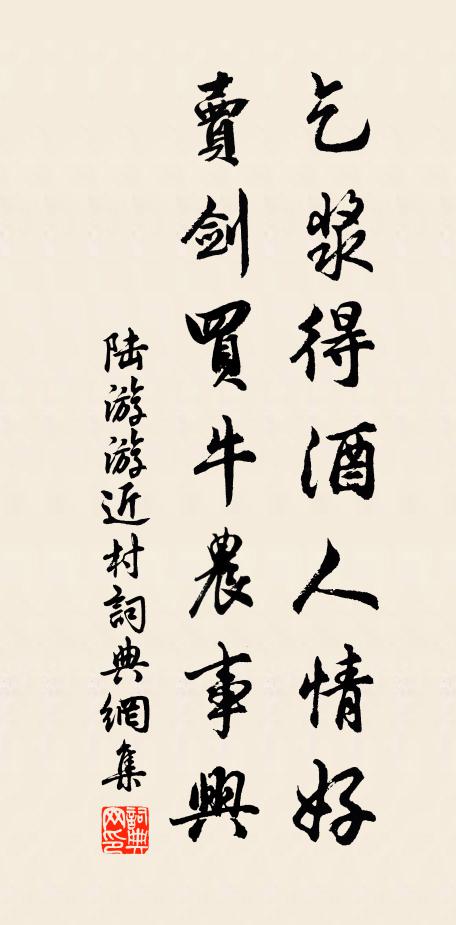 乞漿得酒人情好
賣劍買牛農事興
陆游游近村詞典網集
詞典网印